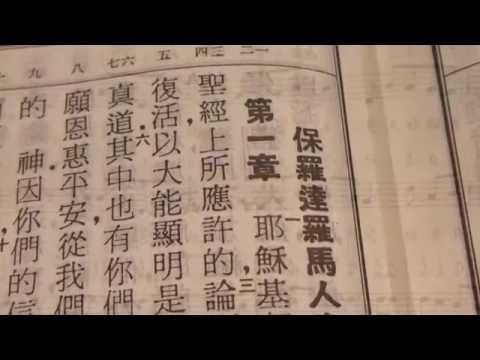 一二 三四 五 六七 八 九
保羅達羅馬人
第一章 一耶穌基
聖經上所應許的，三論
復活以大能顯明是
真道六其中也有你們
願恩惠平安從我們
的 神因你們的信
十